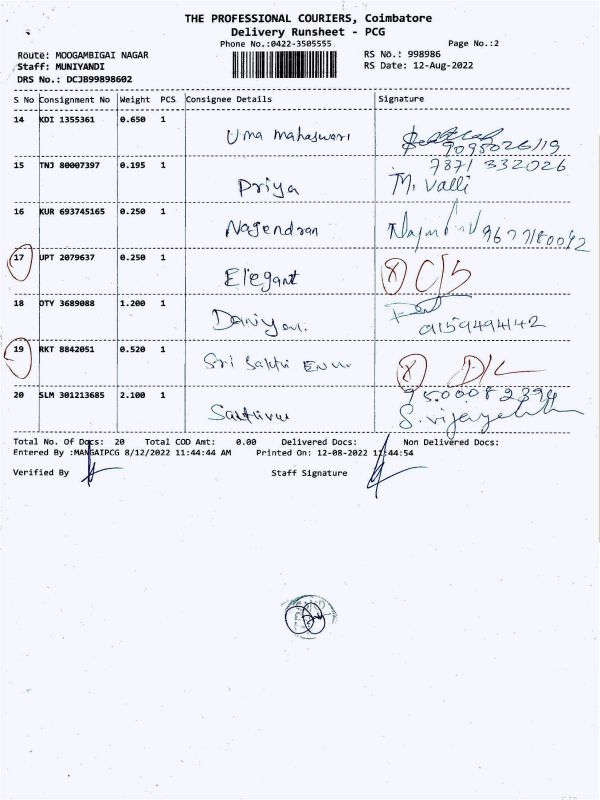 THE PROFESSIONAL COURIERS, Coimbatore
Delivery Runsheet - PCG
Phone No.:0422-3505555 Page No.:2
Route: MOOGAMBIGAI NAGAR RS No.: 998986
Staff: MUNIYANDI RS Date: 12-Aug-2022
DRS No.: DCJB99898602
S No Consignment No Weight PCS Consignee Details Signature
14 KDI 1355361 0.650 1
Uma maheswari
9095026119
15 TNJ 80007397 0.195 1 7871 332026
Priya M. Valli
16 KUR 693745165 0.250 1
Nagendran
17 UPT 2079637 0.250 1
Elegant X C/S
18 DTY 3689088 1.200 1
9159494142
19 RKT 8842051 0.520 1
Sri Sakthi X D/L
20 SLM 301213685 2.100 1
Total No. Of Docs: 20 Total COD Amt: 0.00 Delivered Docs: Non Delivered Docs:
Entered By :MANGAIPCG 8/12/2022 11:44:44 AM Printed On: 12-08-2022 11:44:54
Verified By Staff Signature